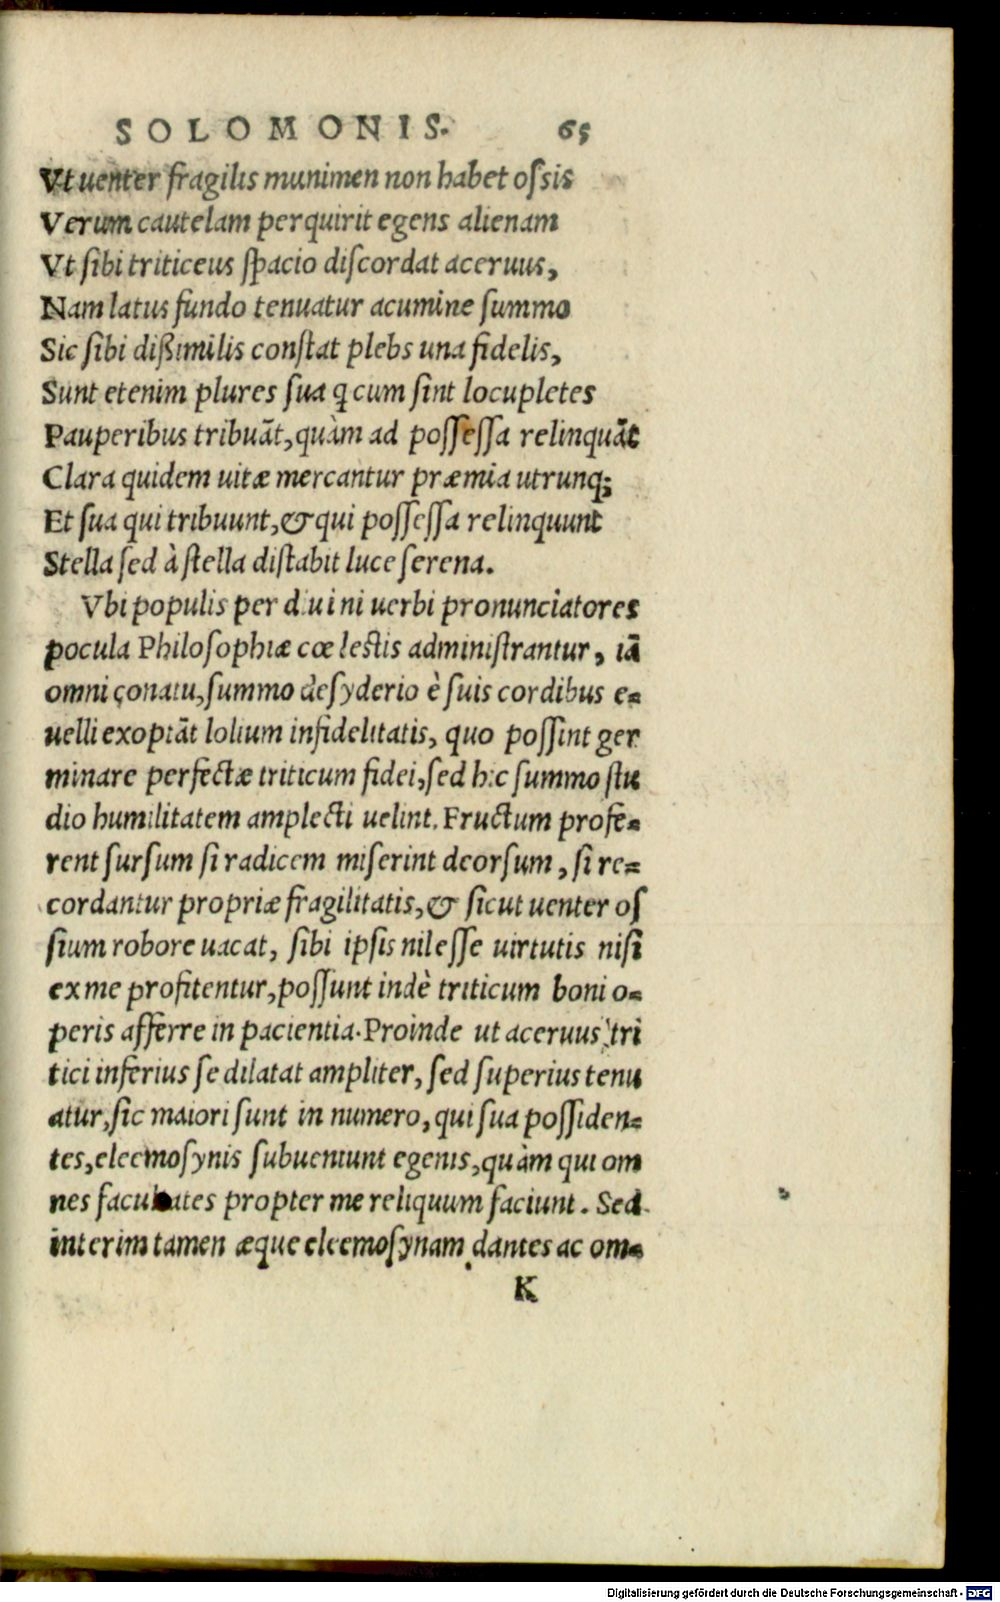 SOLOMONIS. 65
Vt uenter fragilis munimen non habet ossis
Verum cautelam perquirit egens alienam
Vt sibi triticeus spacio discordat aceruus,
Nam latus fundo tenuatur acumine summo
Sic sibi dißimilis constat plebs una fidelis,
Sunt etenim plures sua q̃ cum sint locupletes
Pauperibus tribuãt, quàm ad possessa relinquãt
Clara quidem uitæ mercantur præmia utrunq;
Et sua qui tribuunt, & qui possessa relinquunt
Stella sed à stella distabit luce serena.
Vbi populis per diuini uerbi pronunciatores
pocula Philosophiæ cœlestis administrantur, iã
omni conatu, summo desyderio è suis cordibus e-
uelli exoptãt lolium infidelitatis, quo possint ger
minare perfectæ triticum fidei, sed hic summo stu
dio humilitatem amplecti uelint. Fructum profe-
rent sursum si radicem miserint deorsum, si re-
cordantur propriæ fragilitatis, & sicut uenter os
sium robore uacat, sibi ipsis nil esse uirtutis nisi
ex me profitentur, possunt indè triticum boni o-
peris afferre in pacientia. Proinde ut aceruus tri
tici inferius se dilatat ampliter, sed superius tenu
atur, sic maiori sunt in numero, qui sua possiden-
tes, eleemosynis subueniunt egenis, quàm qui om
nes facultates propter me reliquum faciunt. Sed
interim tamen æque eleemosynam dantes ac om-
K
Digitalisierung gefördert durch die Deutsche Forschungsgemeinschaft - DFG